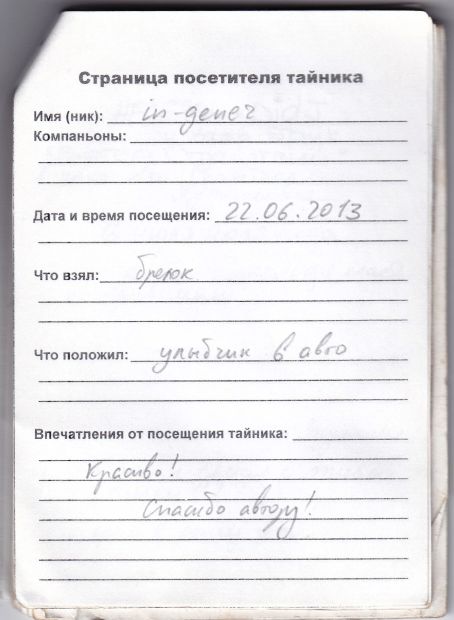 Страница посетителя тайника
Имя (ник): in-gener
Компаньоны:
Дата и время посещения: 22.06.2013
Что взял: брелок
Что положил: улыбчик в авто
Впечатления от посещения тайника:
Красиво!
Спасибо автору!